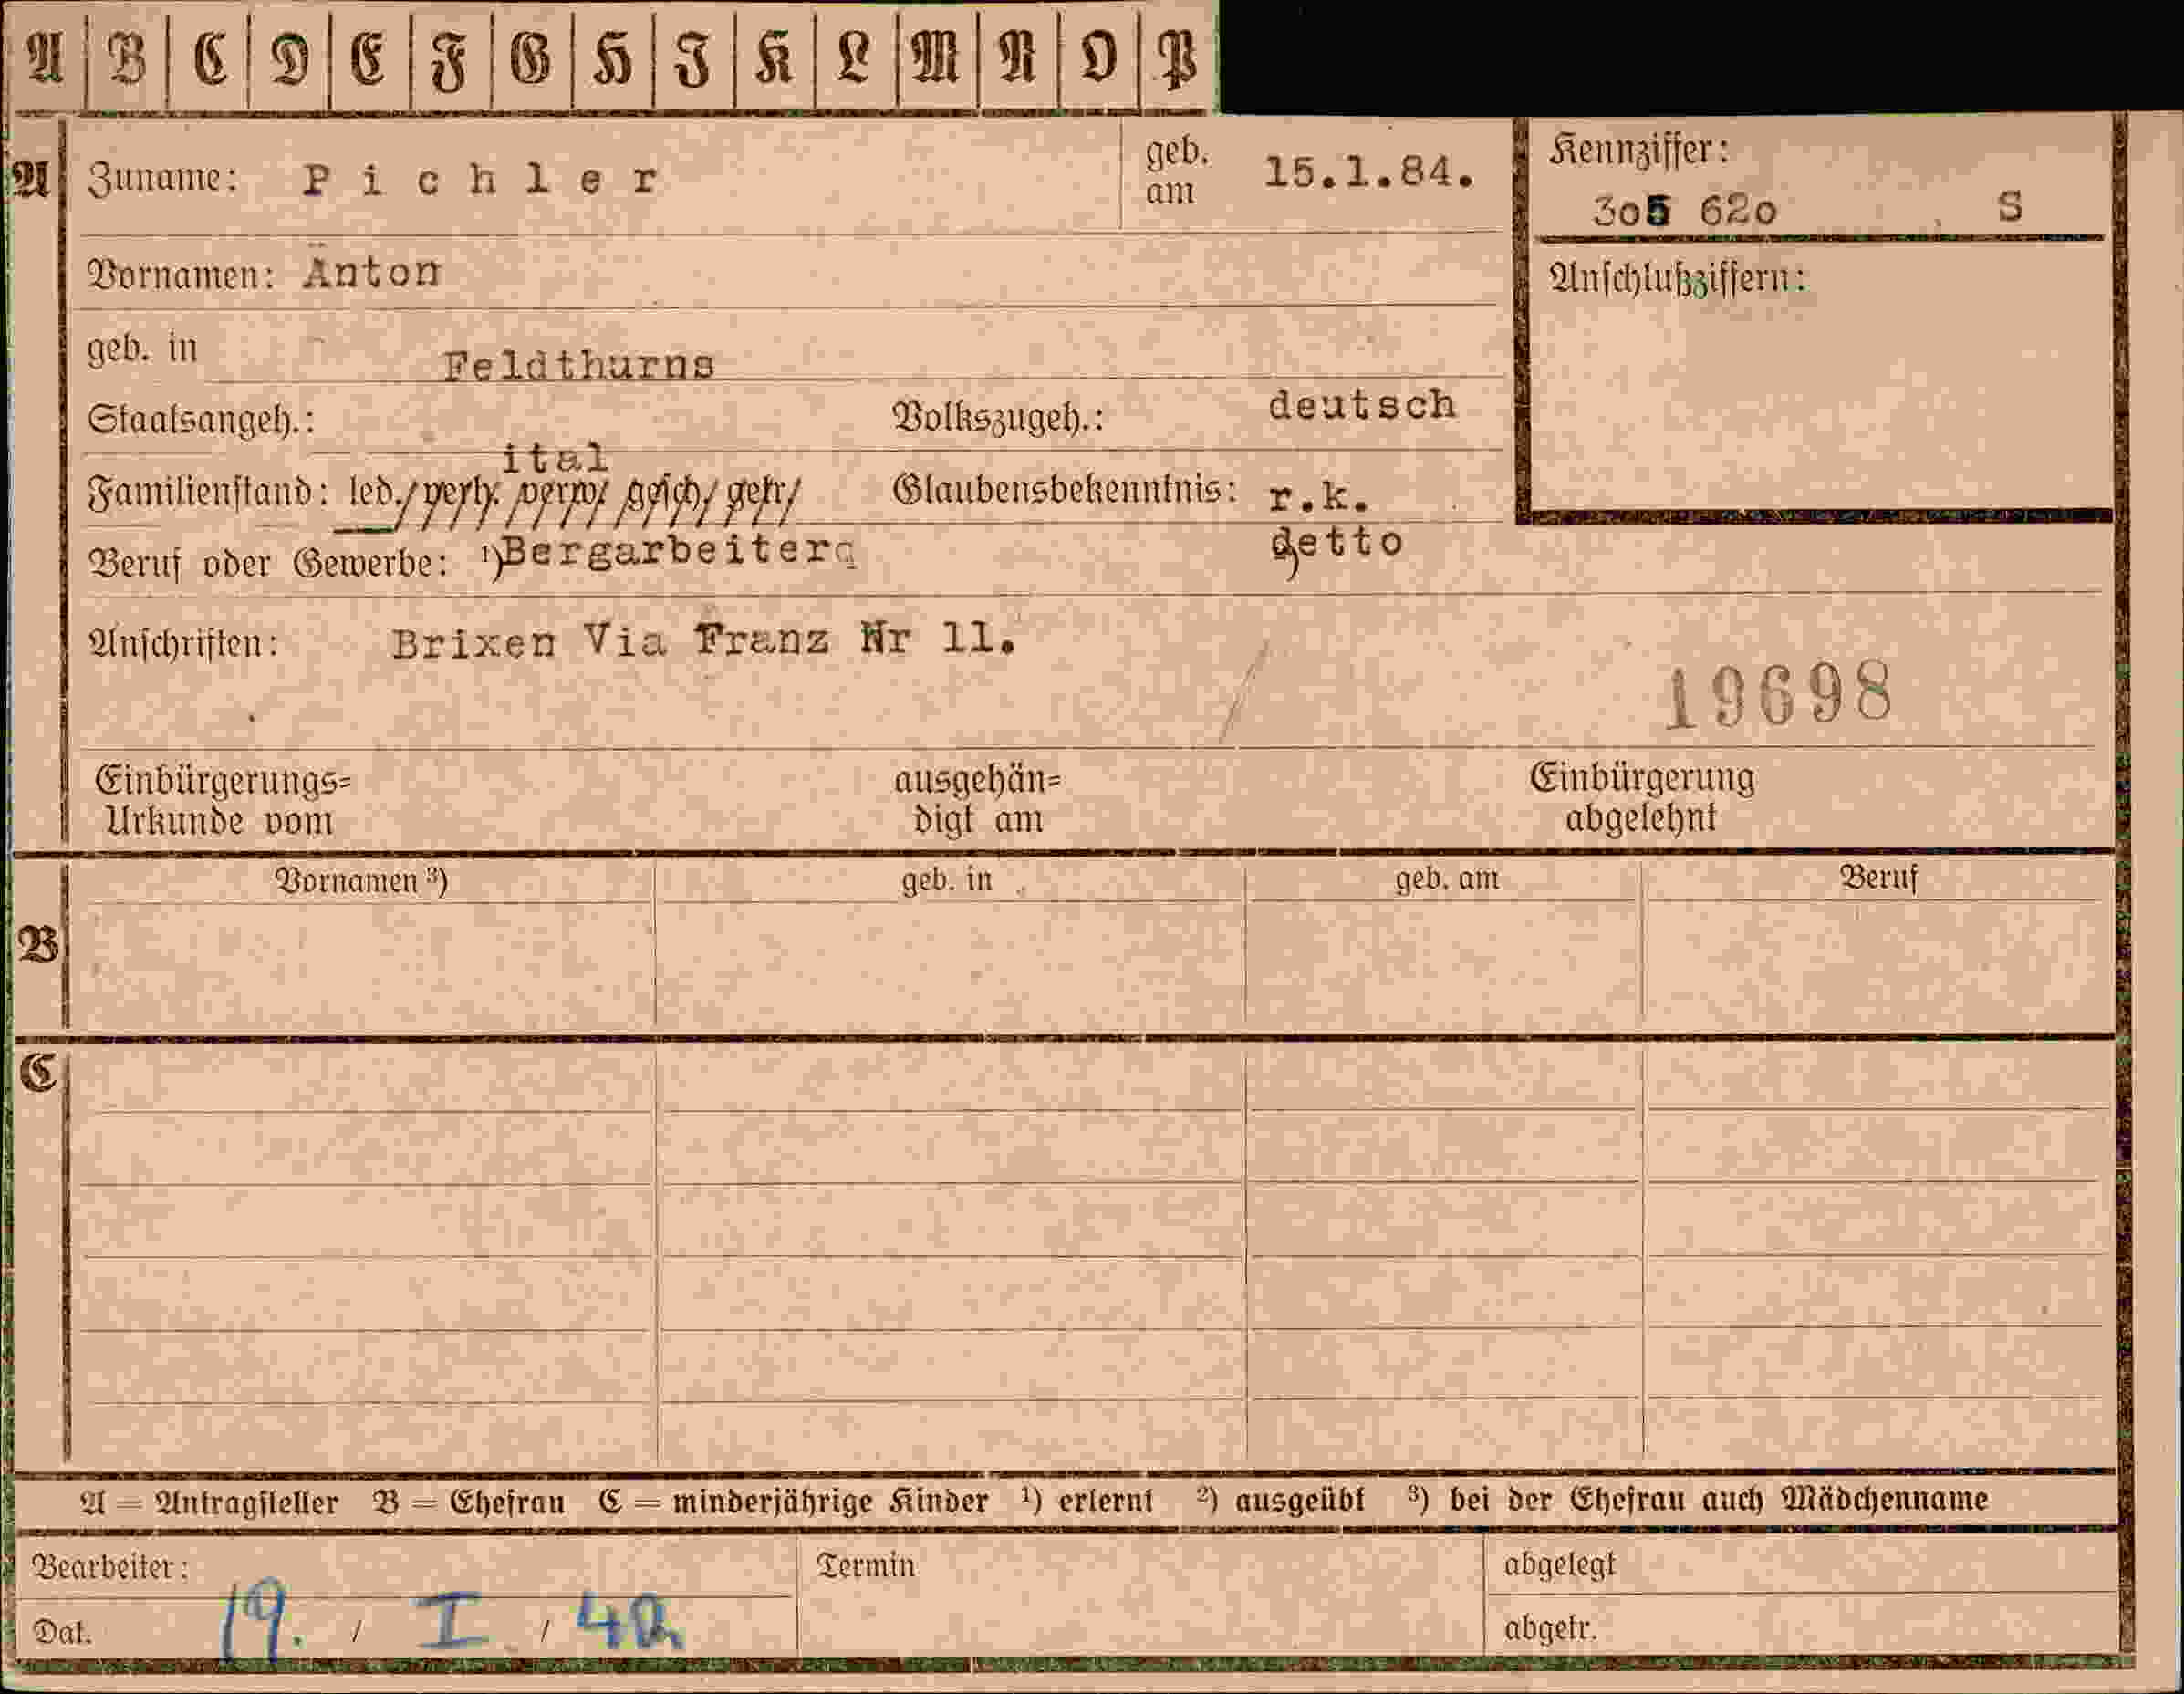 A B C D E F G H I K L M N O P
A Zuname: Pichler geb. am 15.1.84. Kennziffer:
305 620 S
Vornamen: Änton Anschlußziffern:
geb. in Feldthurns
Staatsangeh.: ital Volkszugeh.: deutsch
Familienstand: led./verh. verw/ gesch/ getr/ Glaubensbekenntnis: r.k.
Beruf oder Gewerbe: ¹)Bergarbeiter detto
Anschriften: Brixen Via Franz Nr 11.
19698
Einbürgerungs= ausgehän= Einbürgerung
Urkunde vom digt am abgelehnt
Vornamen ³) geb. in geb. am Beruf
B
C
A = Antragsteller B = Ehefrau C = minderjährige Kinder ¹) erlernt ²) ausgeübt ³) bei der Ehefrau auch Mädchenname
Bearbeiter: Termin abgelegt
Dat. 19. / I / 40 abgetr.